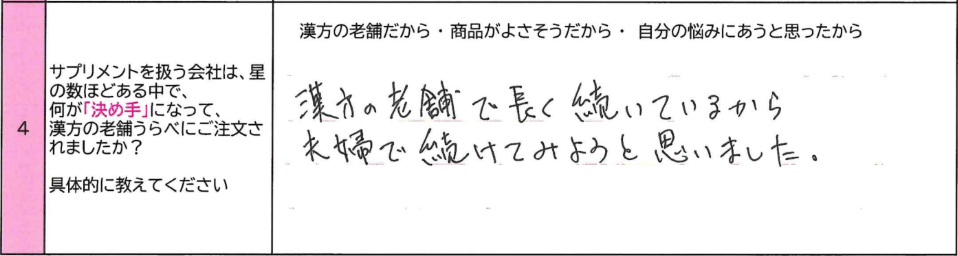 4
サプリメントを扱う会社は、星
の数ほどある中で、
何が「決め手」になって、
漢方の老舗うらべにご注文さ
れましたか？
具体的に教えてください
漢方の老舗だから・商品がよさそうだから・ 自分の悩みにあうと思ったから
漢方の老舗で長く続いているから
夫婦で続けてみようと思いました。